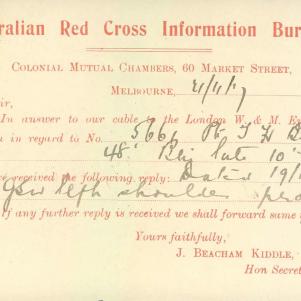 ralian Red Cross Information Bur
Colonial Mutual Chambers, 60 Market Street,
Melbourne, 21/4/17
ir,
In answer to our cable to the London W. & M. Ex
in regard to No. 5661 Pt. J H B
48' late 10'
e received the following reply: Dated 19/
Gsw left shoulder
f any further reply is received we shall forward same
Yours faithfully,
J. BEACHAM KIDDLE,
Hon Secret